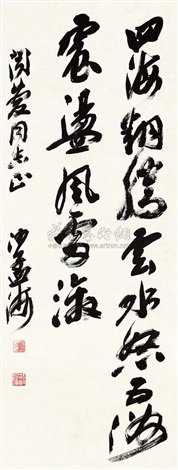 四海翻腾云水怒五洲
震荡风雷激
闻蔓同志正
沙孟海